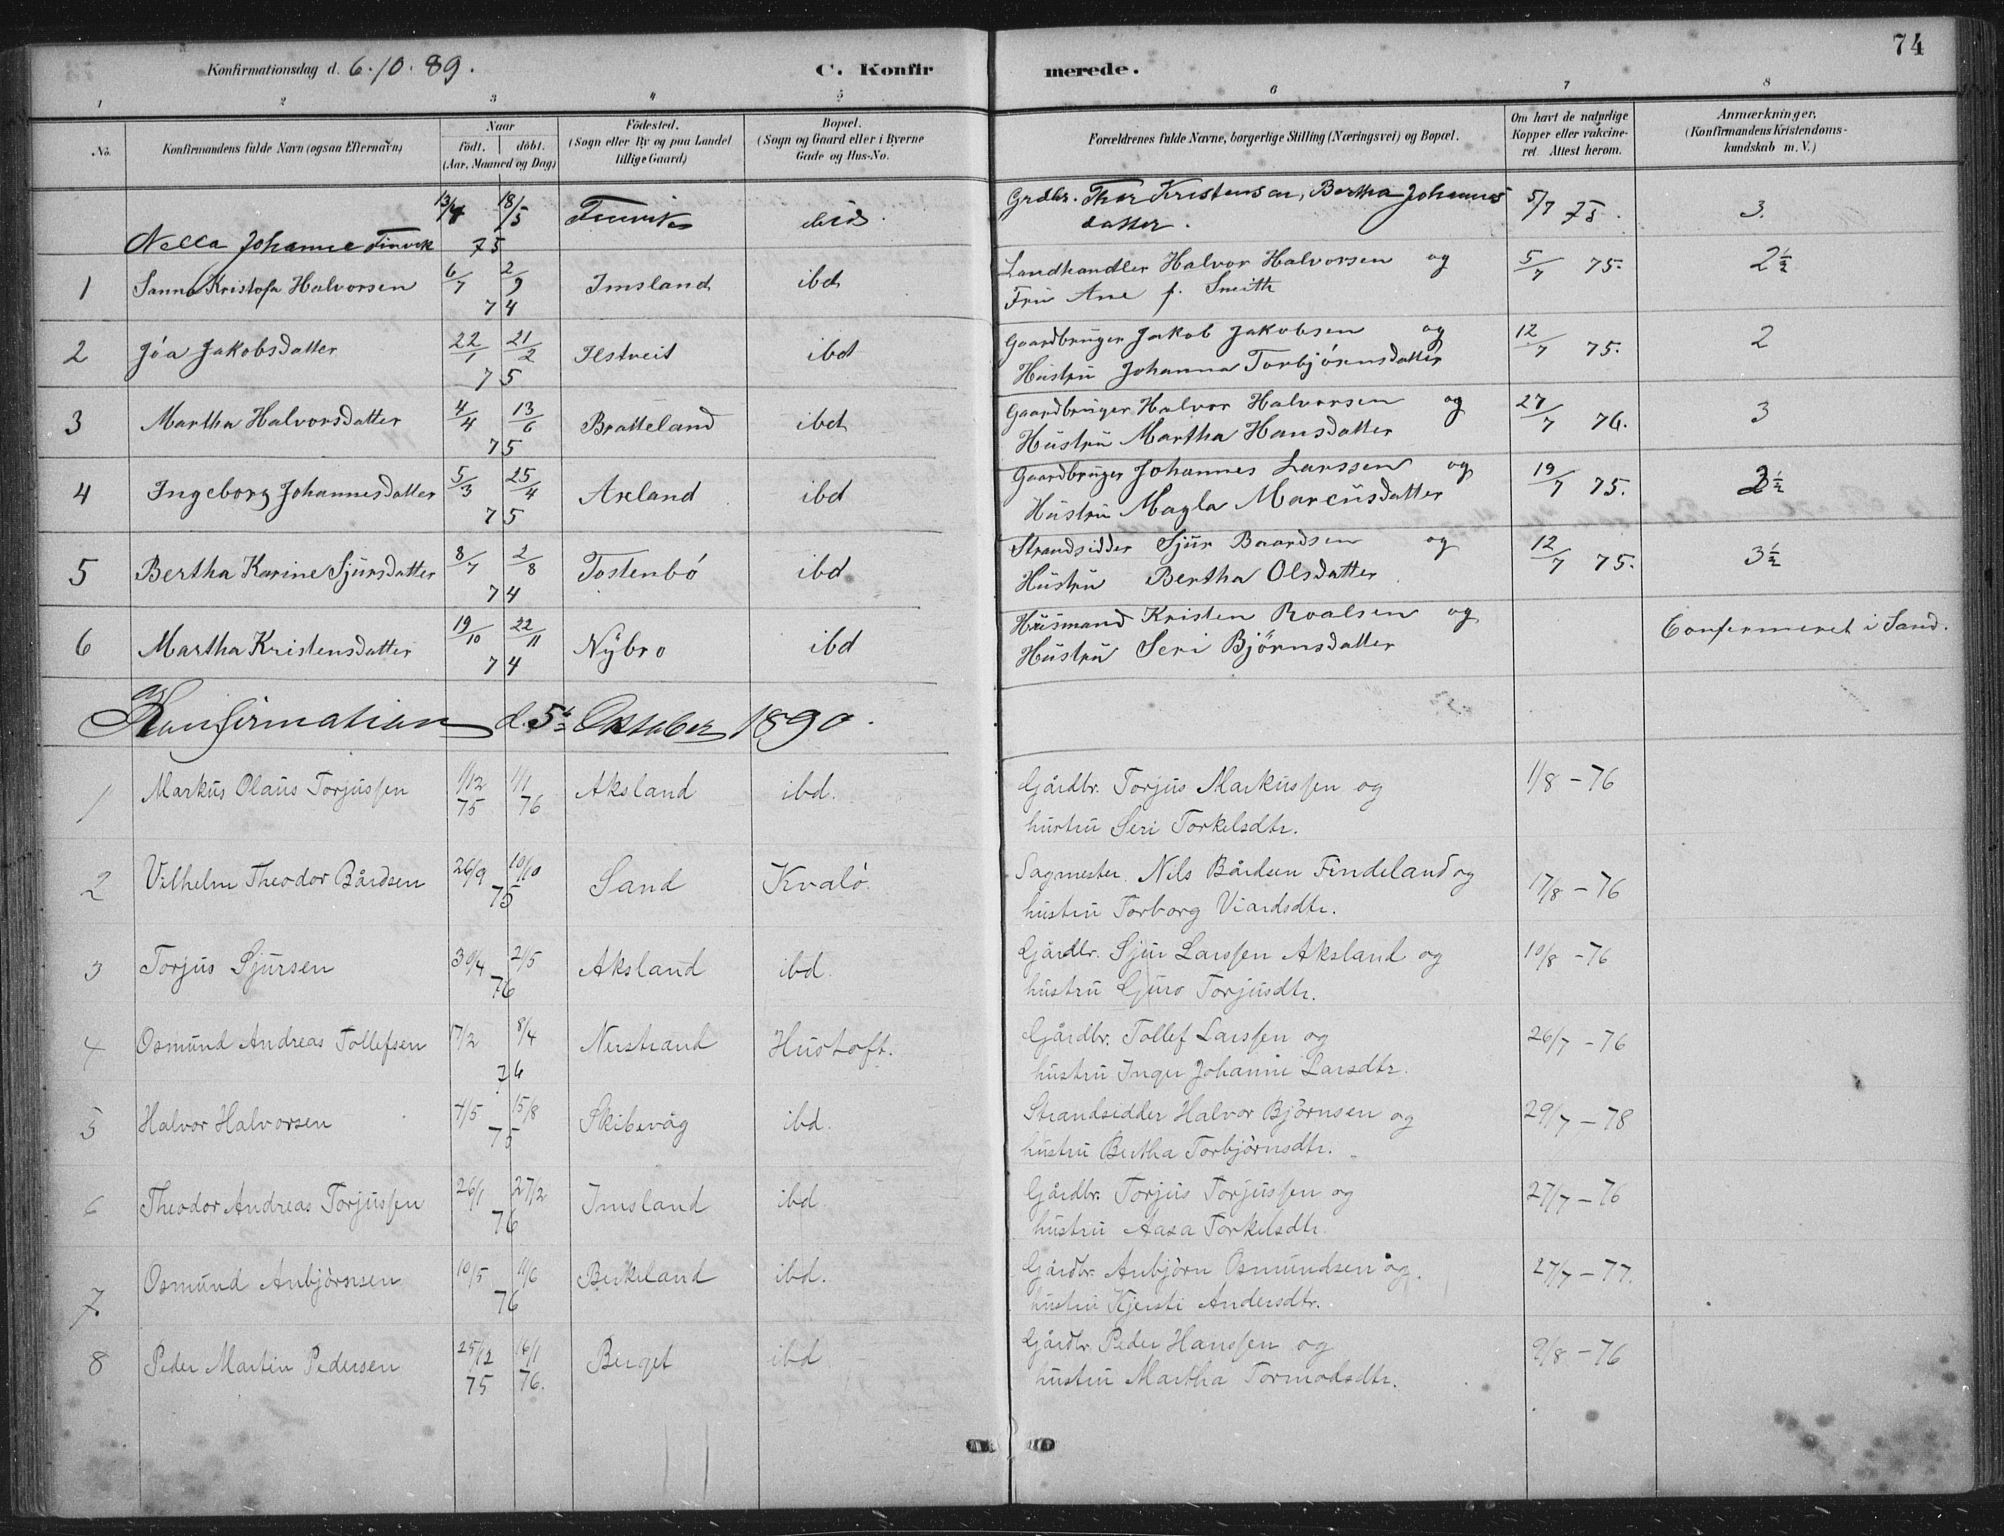 74
Konfirmationsdag d. 6.10.89. C. Konfirmerede.
1 2 3 4 5 6 7 8
No. Konfirmandens fulde Navn (ogsaa Efternavn) Naar födt. döbt. (Aar, Maaned og Dag) Födested. (Sogn eller By og paa Landet tillige Gaard) Bopæl. (Sogn og Gaard eller i Byerne Gade og Hus-No. Forældrenes fulde Navne, borgerlige Stilling (Næringsvei) og Bopæl. Om havt de naturlige Kopper eller vakcineret. Attest herom. Anmærkninger, (Konfirmandens Kristendomskundskab m. V.)
Nella Johanne Finvik 13/4 18/5 75 Finvik ibid. Grdbr. Thor Kristensen, Bertha Johannes
datter. 5/7 75. 3.
1 Sanna Kristofa Halvorsen 6/7 2/9 74 Imsland ibd Landhandler Halvor Halvorsen og
Fru Ane f. Smith 5/7 75. 2½
2 Jóa Jakobsdatter 22/1 21/2 75 Ilstveit ibd Gaardbruger Jakob Jakobsen og
Hustru Johanna Torbjörnsdatter 12/7 75. 2
3 Martha Halvorsdatter 4/4 13/6 75 Bratteland ibd Gaardbruger Halvor Halvorsen og
Hustru Martha Hansdatter 27/7 76. 3
4 Ingeborg Johannesdatter 5/3 25/4 75 Axland ibd Gaardbruger Johannes Larssen og
Hustru Magla Marcusdatter 19/7 75.
5 Bertha Karine Sjursdatter 8/7 2/8 74 Tostenbó ibd Strandsidder Sjur Baardsen og
Hustru Bertha Olsdatter 12/7 75. 3½
6 Martha Kristensdatter 19/10 22/11 74 Nÿbro ibd Husmand Kristen Roalsen og
Hustru Seri Björnsdatter Confermeret i Sand.
Konfirmation d. 5te Oktober 1890.
1 Markus Olaus Torjussen 1/12 75 1/1 76 Aksland ibd. Gårdbr. Torjus Markussen og
hustru Seri Torkelsdtr. 1/8 - 76
2 Vilhelm Theodor Bårdsen 26/9 10/10 75 Sand Kvaló. Sagmester Nils Bårdsen Findeland og
hustru Torborg Viardsdtr. 17/8 - 76
3 Torjus Sjursen 30/4 21/5 76 Aksland ibd. Gårdbr. Sjur Larssen Aksland og
hustru Guro Torjusdtr. 10/8 - 76
4 Osmund Andreas Tollefsen 17/2 8/4 76 Nerstrand Hustoft. Gårdbr. Tollef Larssen og
hustru Inger Johanne Larsdtr. 26/7 - 76
5 Halvor Halvorsen 4/5 15/8 75 Skibevåg ibd. Strandsidder Halvor Björnsen og
hustru Bertha Torbjörnsdtr. 29/7 - 78
6 Theodor Andreas Torjussen 26/1 27/2 76 Imsland ibd. Gårdbr. Torjus Torjussen og
hustru Aasa Torkelsdtr. 27/7 - 76
7 Osmund Anbjörnsen 10/5 11/6 76 Birkeland ibd. Gårdbr. Anbjörn Osmundsen og.
hustru Kjersti Andersdtr. 27/7 - 77.
8 Peder Martin Pedersen 25/12 75 16/1 76. Berget ibd Gårdbr. Peder Hanssen og
hustru Martha Tormodsdtr. 9/8 - 76